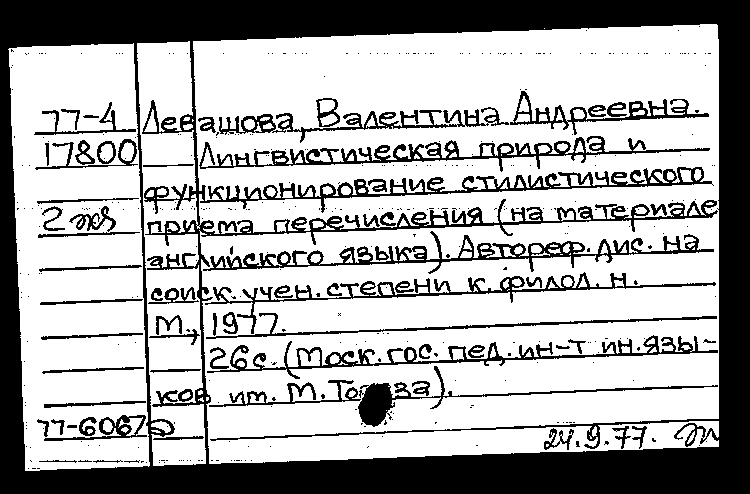 77-4 Левашова, Валентина Андреевна.
17800 Лингвистическая природа и
функционирование стилистического
2 экз приема перечисления (на материале
английского языка). Автореф. дис. на
соиск. учен. степени к. филол. н.
М., 1977.
26 с. (Моск. гос. пед. ин-т ин. язы-
ков им. М. Тореза).
77-6067
24.9.77.